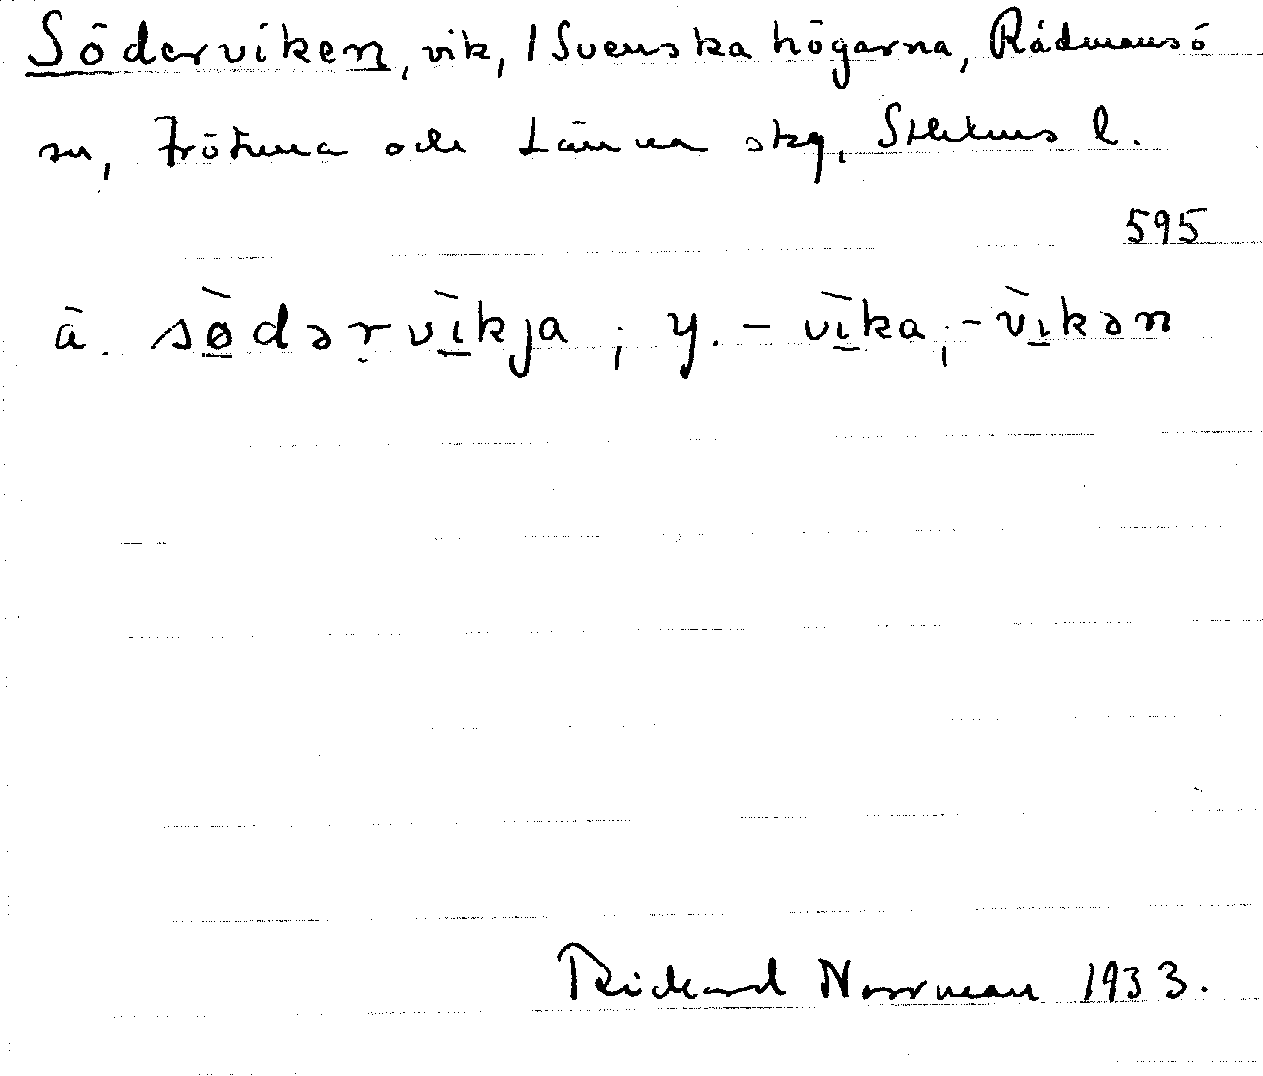 Söderviken, vik, I Svenska högarna, Rådmansö
sn, Frötuna och Länna skg, Sthlms l.
595
ä. sø̀dərvìkja; y. -vìka; -vìkən
Rickard Norrman 1933.